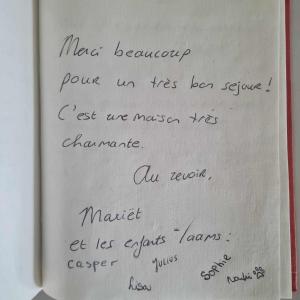 Merci beaucoup
pour un très bon sejour!
C'est une maison très
charmante.
Au revoir,
Mariët
et les enfants
casper Julius Sophie
Lisa